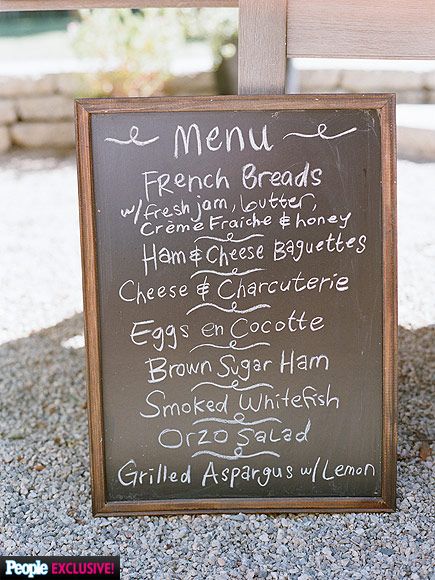 Menu
French Breads
w/ fresh jam, butter,
Crème Fraiche & honey
Ham & Cheese Baguettes
Cheese & Charcuterie
Eggs en Cocotte
Brown Sugar Ham
Smoked Whitefish
Orzo Salad
Grilled Aspargus w/ Lemon
People EXCLUSIVE!